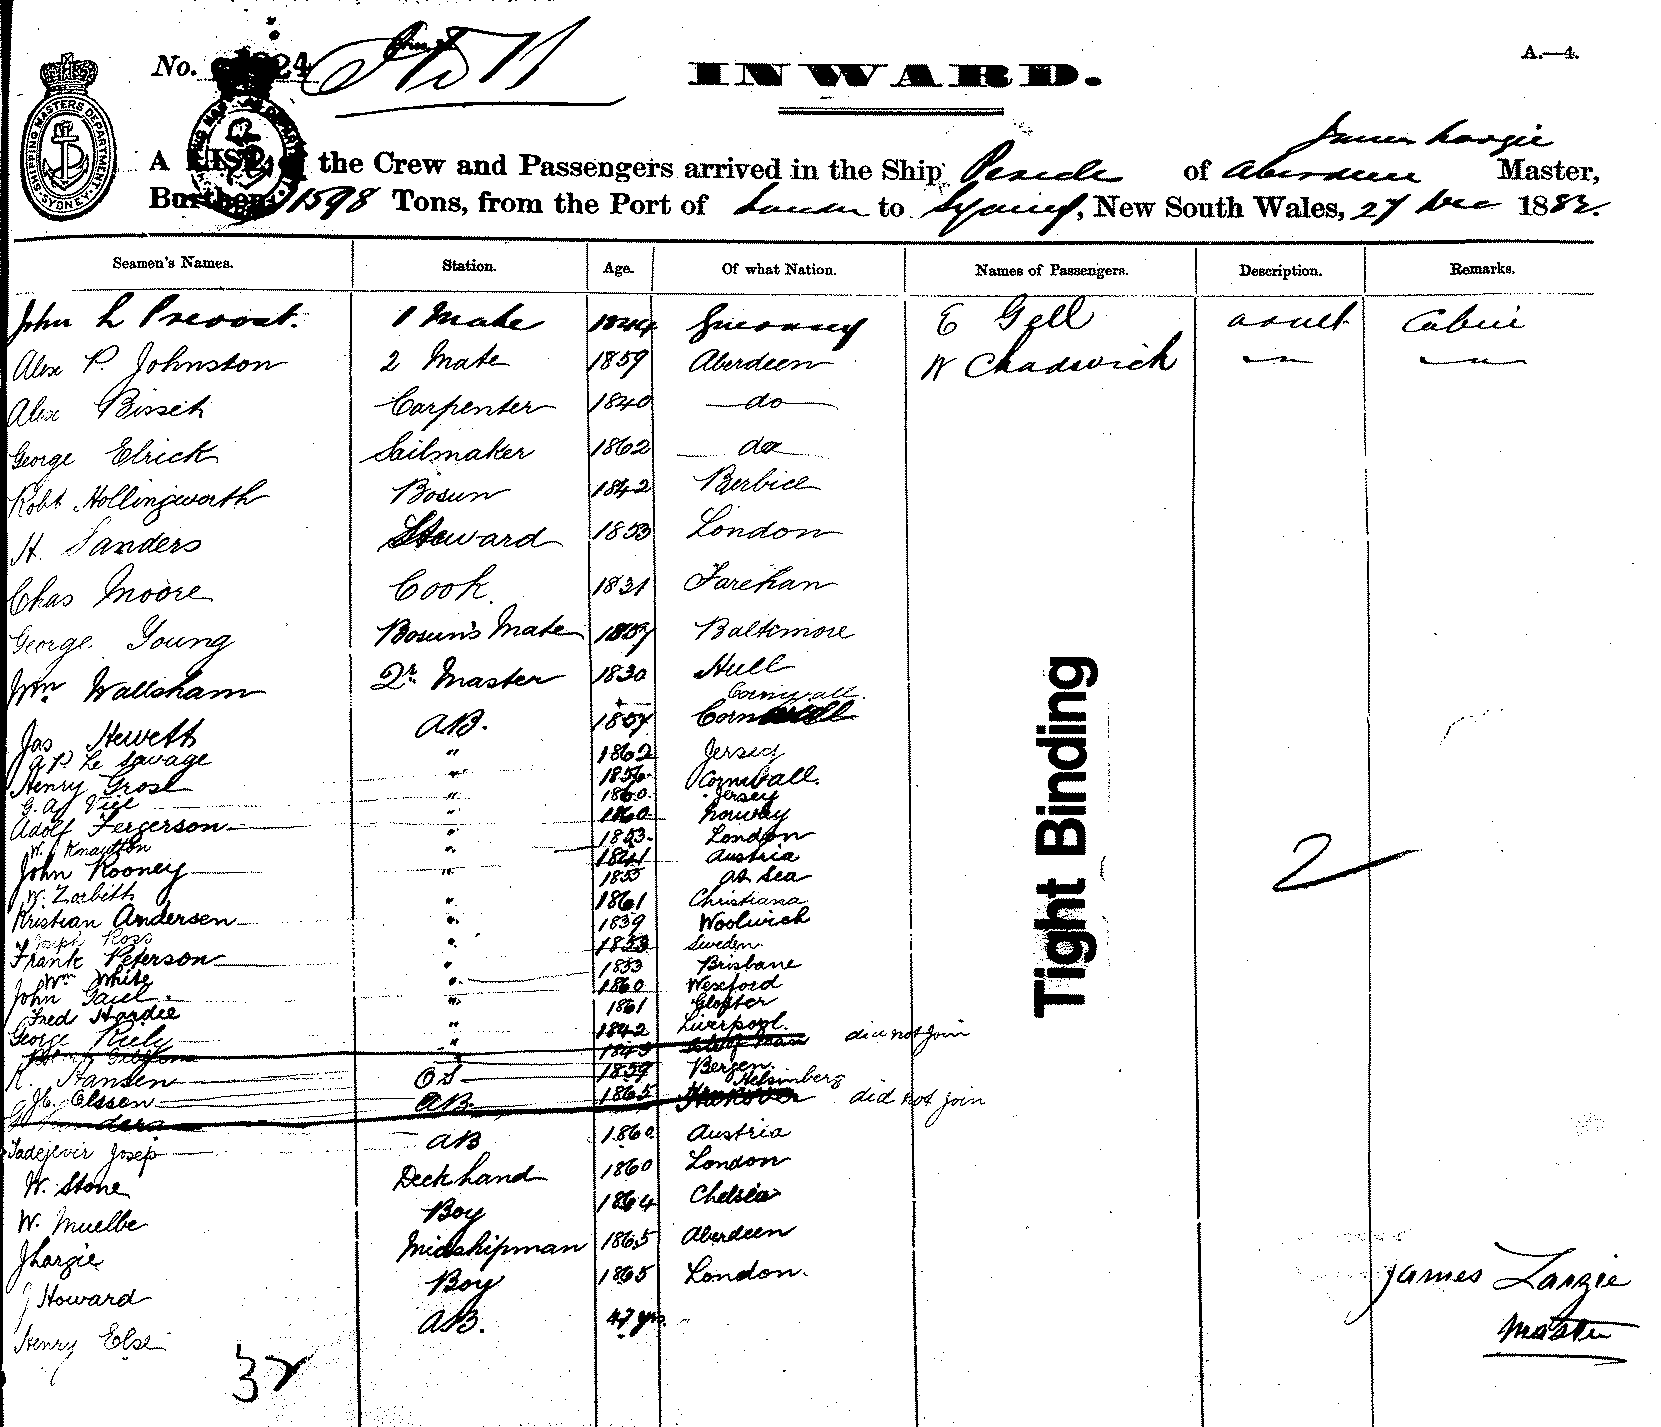 No.
INWARD.
A.—4.
SHIPPING MASTERS DEPARTMENT SYDNEY
James Largie
A LIST of the Crew and Passengers arrived in the Ship of Aberdeen Master,
Burthen 1598 Tons, from the Port of London to Sydney, New South Wales, 27 Dec 1882.
Seamen's Names. Station. Age. Of what Nation. Names of Passengers. Description. Remarks.
John L Prevost. 1 Mate 1844 Guernsey E Gell adult Cabin
Alex P. Johnston 2 Mate 1859 Aberdeen W Chadwick " "
Alex Bisset Carpenter 1840 do
George Elrick Sailmaker 1862 do
Robt Hollingworth Bosun 1842 Berbice
H. Sanders Steward 1853 London
Chas Moore Cook. 1831 Farehan
George Young Bosun's Mate 1857 Baltimore
Wm Wallsham Qr Master 1830 Hull
Cornwall.
Jas Hewett AB. 1857
A P. Le Savage " 1862 Jersey
Henry Grose " 1856 Cornwall.
G. A. Vige " 1860. Jersey
Adolf Fergerson " 1860 Norway
W. Knayston " 1853. London
John Rooney " 1841 Austria
W. Zarbith 1855 At Sea
Kristian Andersen " 1861 Christiana
Joseph Ross " 1839 Woolwich
Frank Peterson " 1853 Sweden
Wm White " 1853 Brisbane
John Gaul. " 1860 Wexford
Fred Hardie " 1861 Gloster
George Riely " 1842 Liverpool.
" 1843 did not join
K. Hansen OS 1859 Bergen.
J. C. Olssen AB 1865 Helsinberg did not join
Tadejevir Josep AB 1860 Austria
W. Stone Deck hand 1860 London
W. Muelbe Boy 1864 Chelsea
J Largie Midshipman 1865 Aberdeen
J Howard Boy 1865 London.
Henry Else AB. 47 yrs.
32
Tight Binding
2
James Largie
Master